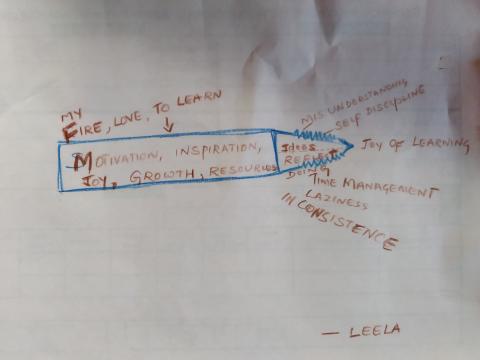 MY
FIRE, LOVE, TO LEARN
MOTIVATION, INSPIRATION,
JOY, GROWTH, RESOURCES
Ideas
REFLECT
DOING
MIS UNDERSTANDING
SELF DISCIPLINE
JOY OF LEARNING
TIME MANAGEMENT
LAZINESS
INCONSISTENCE
— LEELA